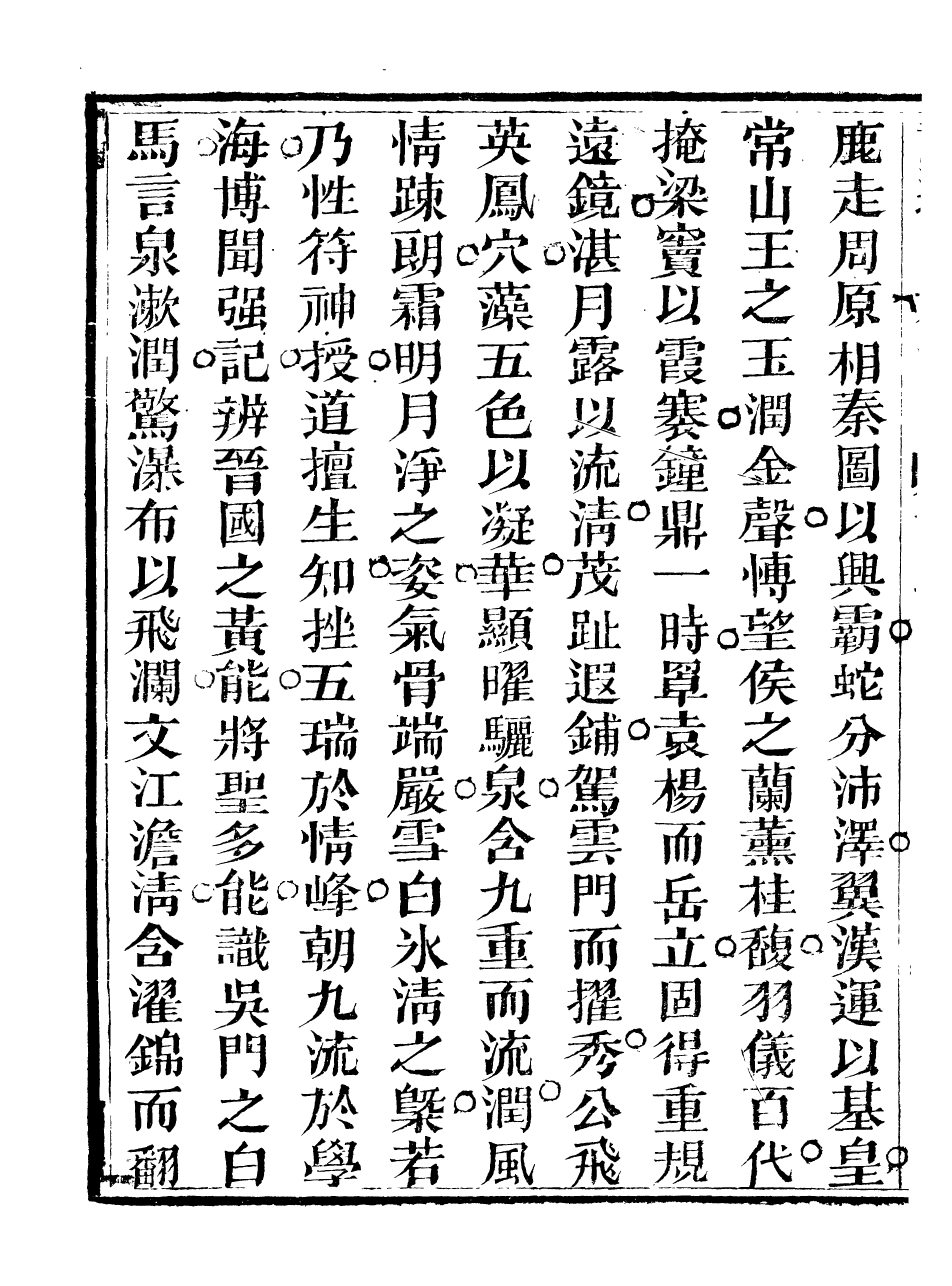 鹿走周原相秦圖以興霸蛇分沛澤翼漢運以基皇
常山王之玉潤金聲愽望侯之蘭薰桂馥羽儀百代
掩梁竇以霞褰鐘鼎一時罩袁楊而岳立固得重規
遠鏡湛月露以流清茂趾遐鋪駕雲門而擢秀公飛
英鳳穴藻五色以凝華顯曜驪泉含九重而流潤風
情踈朗霜明月淨之姿氣骨端嚴雪白氷清之槩若
乃性符神授道擅生知挫五瑞於情峰朝九流於學
海博聞强記辨晉國之黃能將聖多能識吳門之白
馬言泉漱潤驚瀑布以飛瀾文江澹清含濯錦而翻